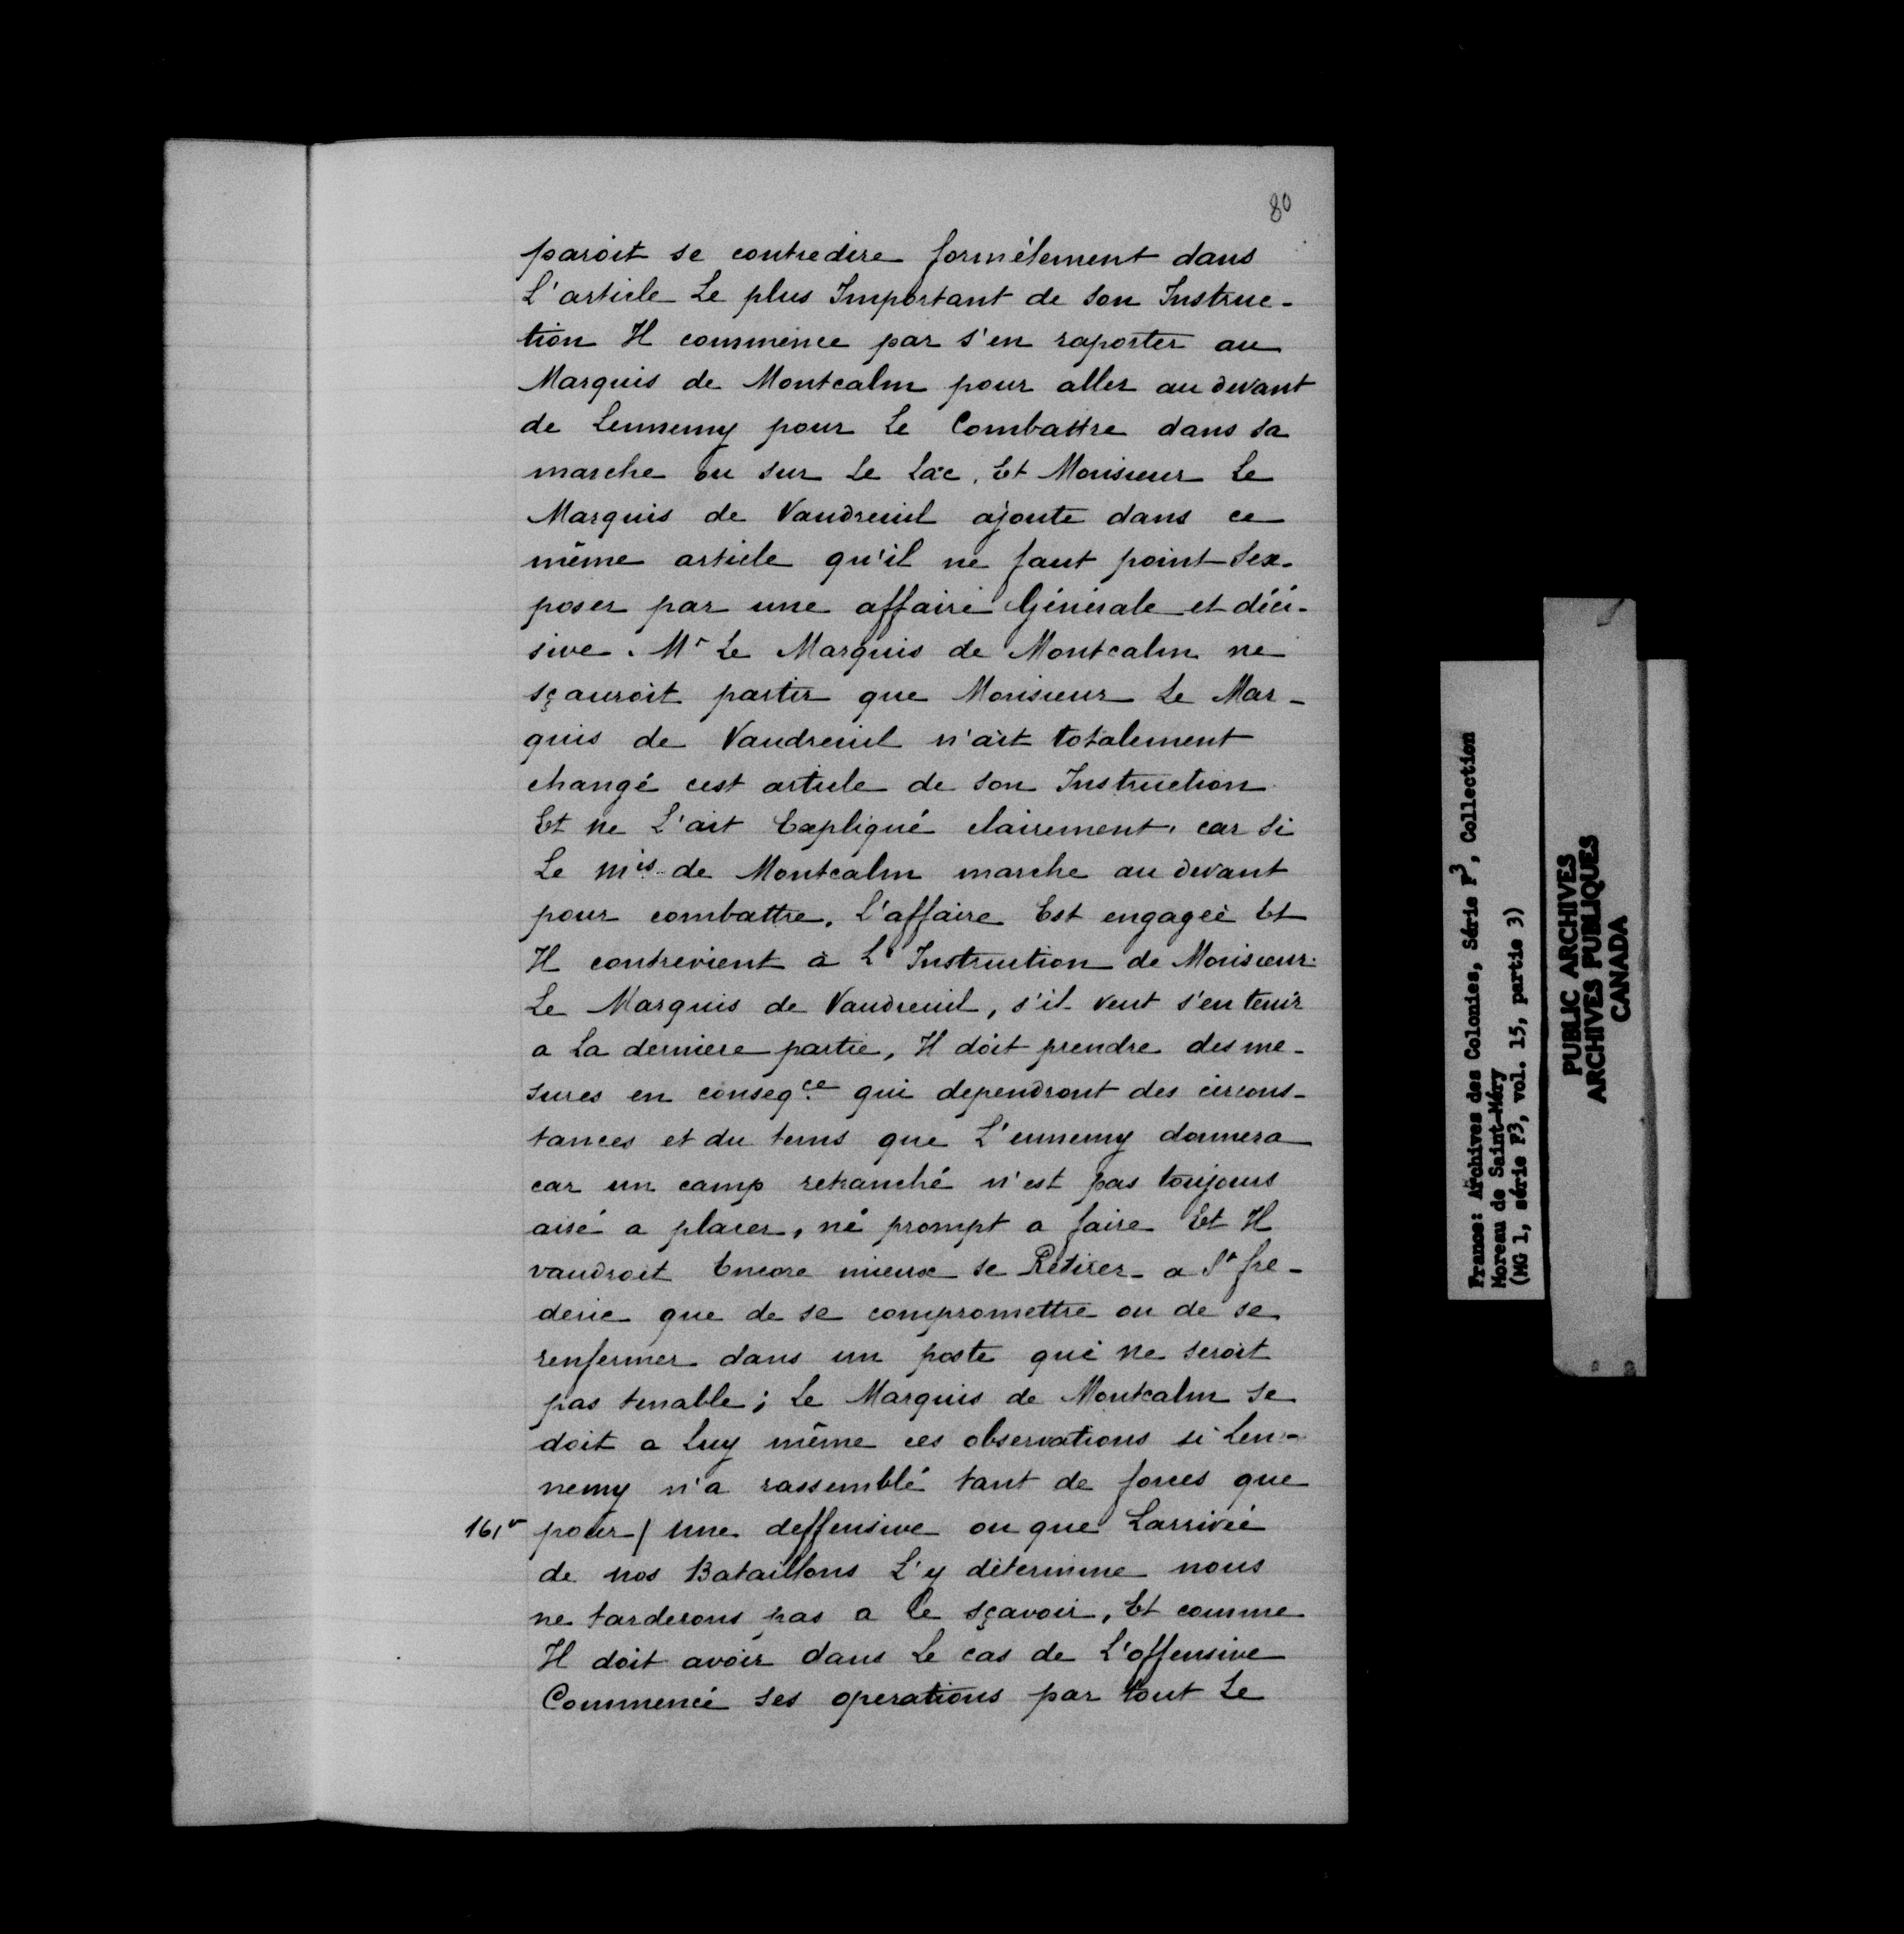 80
paroit se contredire formélement dans
L'article Le plus Important de son Instruc-
tion Il commence par s'en raporter au
Marquis de Montcalm pour aller au devant
de Lennemy pour Le Combattre dans sa
marche ou sur Le Lac, Et Monsieur Le
Marquis de Vaudreuil ajoute dans ce
même article qu'il ne faut point Sex-
poser par une affaire Générale et déci-
sive. Mr Le Marquis de Montcalm ne
sçauroit partir que Monsieur Le Mar-
quis de Vaudreuil n'ait totalement
changé cest article de son Instruction
Et ne L'ait Expliqué clairement, car si
Le Mis de Montcalm marche au devant
pour combattre, L'affaire Est engagée Et
Il contrevient à L'Instruction de Monsieur
Le Marquis de Vaudreuil, s'il veut s'en tenir
a La derniere partie, Il doit prendre des me-
sures en conseqce qui dependront des circons-
tances et du tems que L'ennemy donnera
car un camp retranché n'est pas toujours
aisé a placer, né prompt a faire Et Il
vaudroit Encore mieux se Retirer a St fre-
deric que de se compromettre ou de se
renfermer dans un poste qui ne seroit
pas tenable; Le Marquis de Montcalm se
doit a Luy même ces observations si Len-
nemy n'a rassemblé tant de forces que
161v pour / une deffensive ou que Larrivée
de nos Bataillons L'y détermine nous
ne tarderons pas a le sçavoir, Et comme
Il doit avoir dans Le cas de L'offensive
Commencé ses operations par tout Le
France: Archives des Colonies, Série F3, Collection
Moreau de Saint-Méry
(MG 1, série F3, vol. 15, partie 3)
PUBLIC ARCHIVES
ARCHIVES PUBLIQUES
CANADA